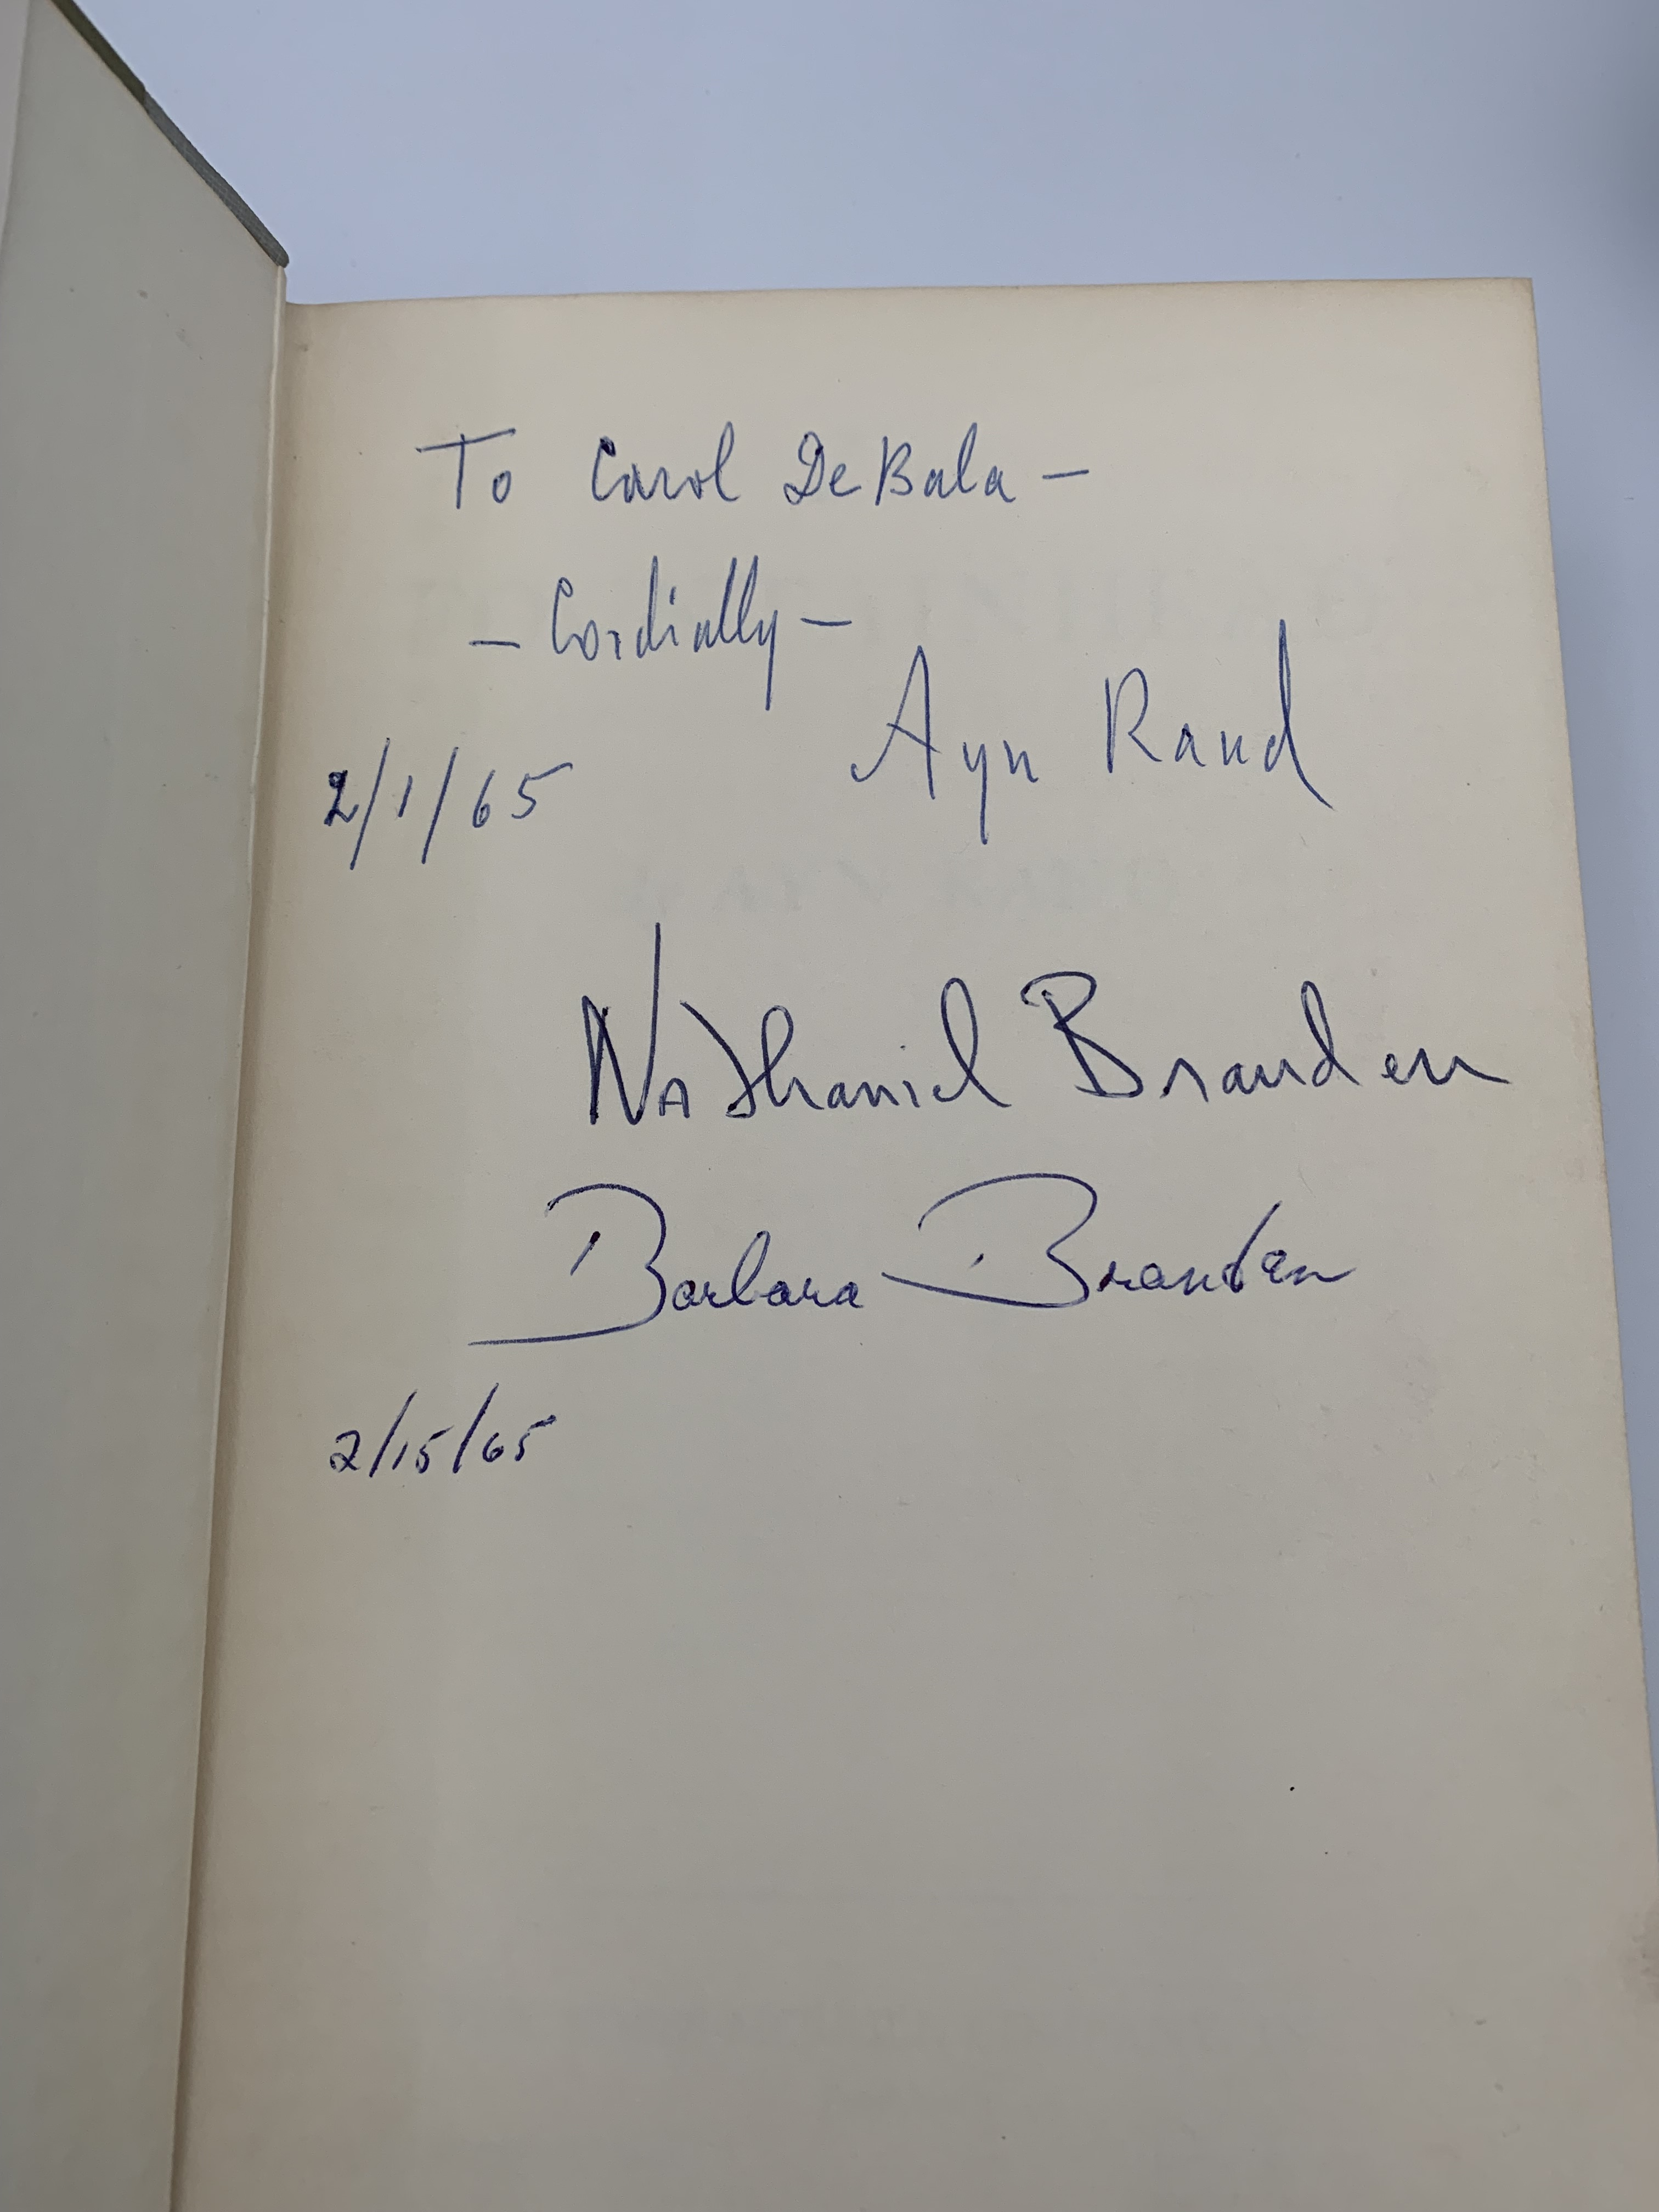 To Carol DeBala —
— Cordially —
Ayn Rand
2/1/65
Nathaniel Branden
Barbara Branden
2/15/65